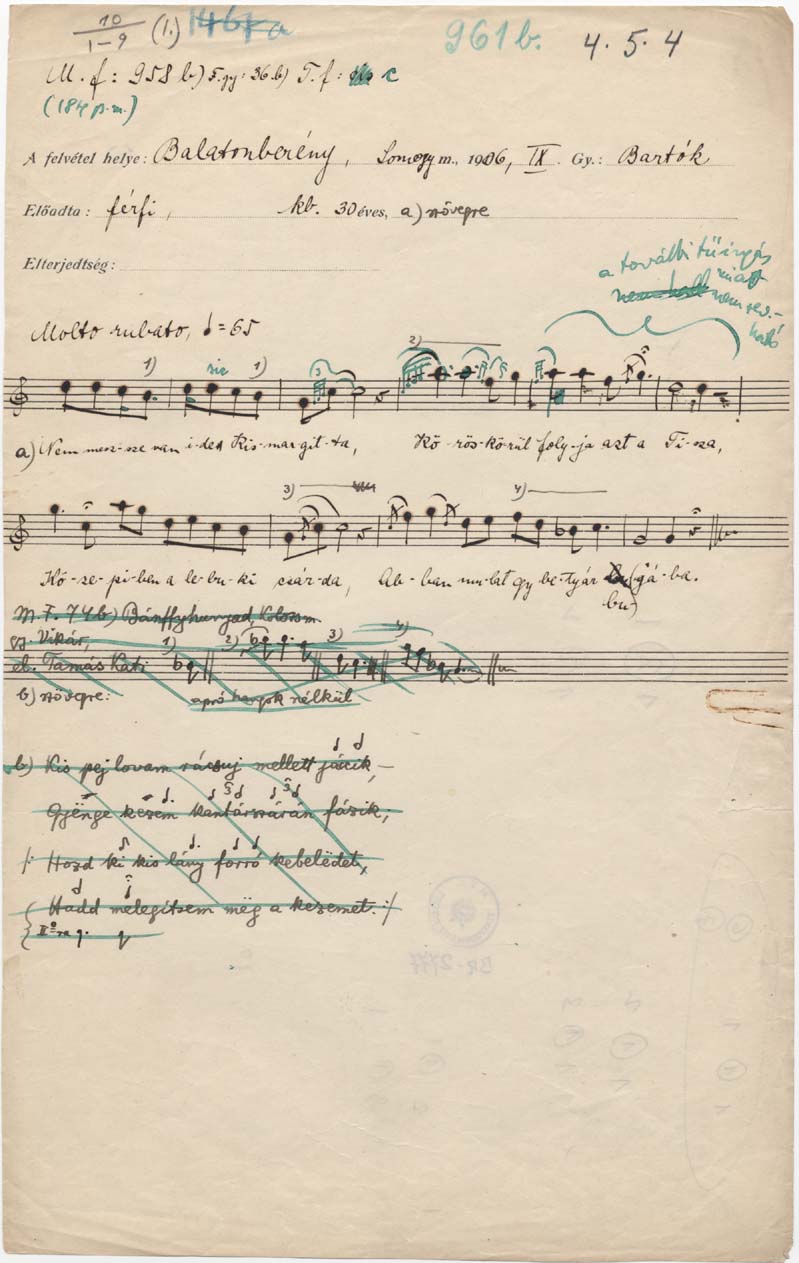 10 / 1-9 (1.) 1461 a 961 b. 4. 5. 4
M. f: 958 b) 5. gy: 36. b) T. f: c
(187 p. m.)
A felvétel helye: Balatonberény, Somogy m., 1906, IX. Gy.: Bartók
Előadta: férfi, kb. 30 éves, a) szövegre
Elterjedtség:
a további tűirgás
miatt
nem
Molto rubato, ♩ = 65
1) sic 1) 3 2)
a) Nem mesz-sze van i-des Kis-mar-git-ta, Kö-rös-körül foly-ja azt a Ti-sza,
3) 4)
Kö-ze-pi-ben a le-bu-ki csár-da, Ab-ban mu-lat gy be-tyár (gá-ba.
bu-)
M. F. 774 b) Bánffyhunyad, Kolozsm.
gy. Vikár,
el. Tamás Kati 1) 2) 3) 4)
b) szövegre: apró hangok nélkül
b) Kis pej lovam rácsuj mellett jácik,
Gyënge kezem kantárszárán fázik;
/: Hozd ki kis lány forró kebelëdet,
Hadd melegítsem mëg a kezemet. :/
II°-ra
BR-2777